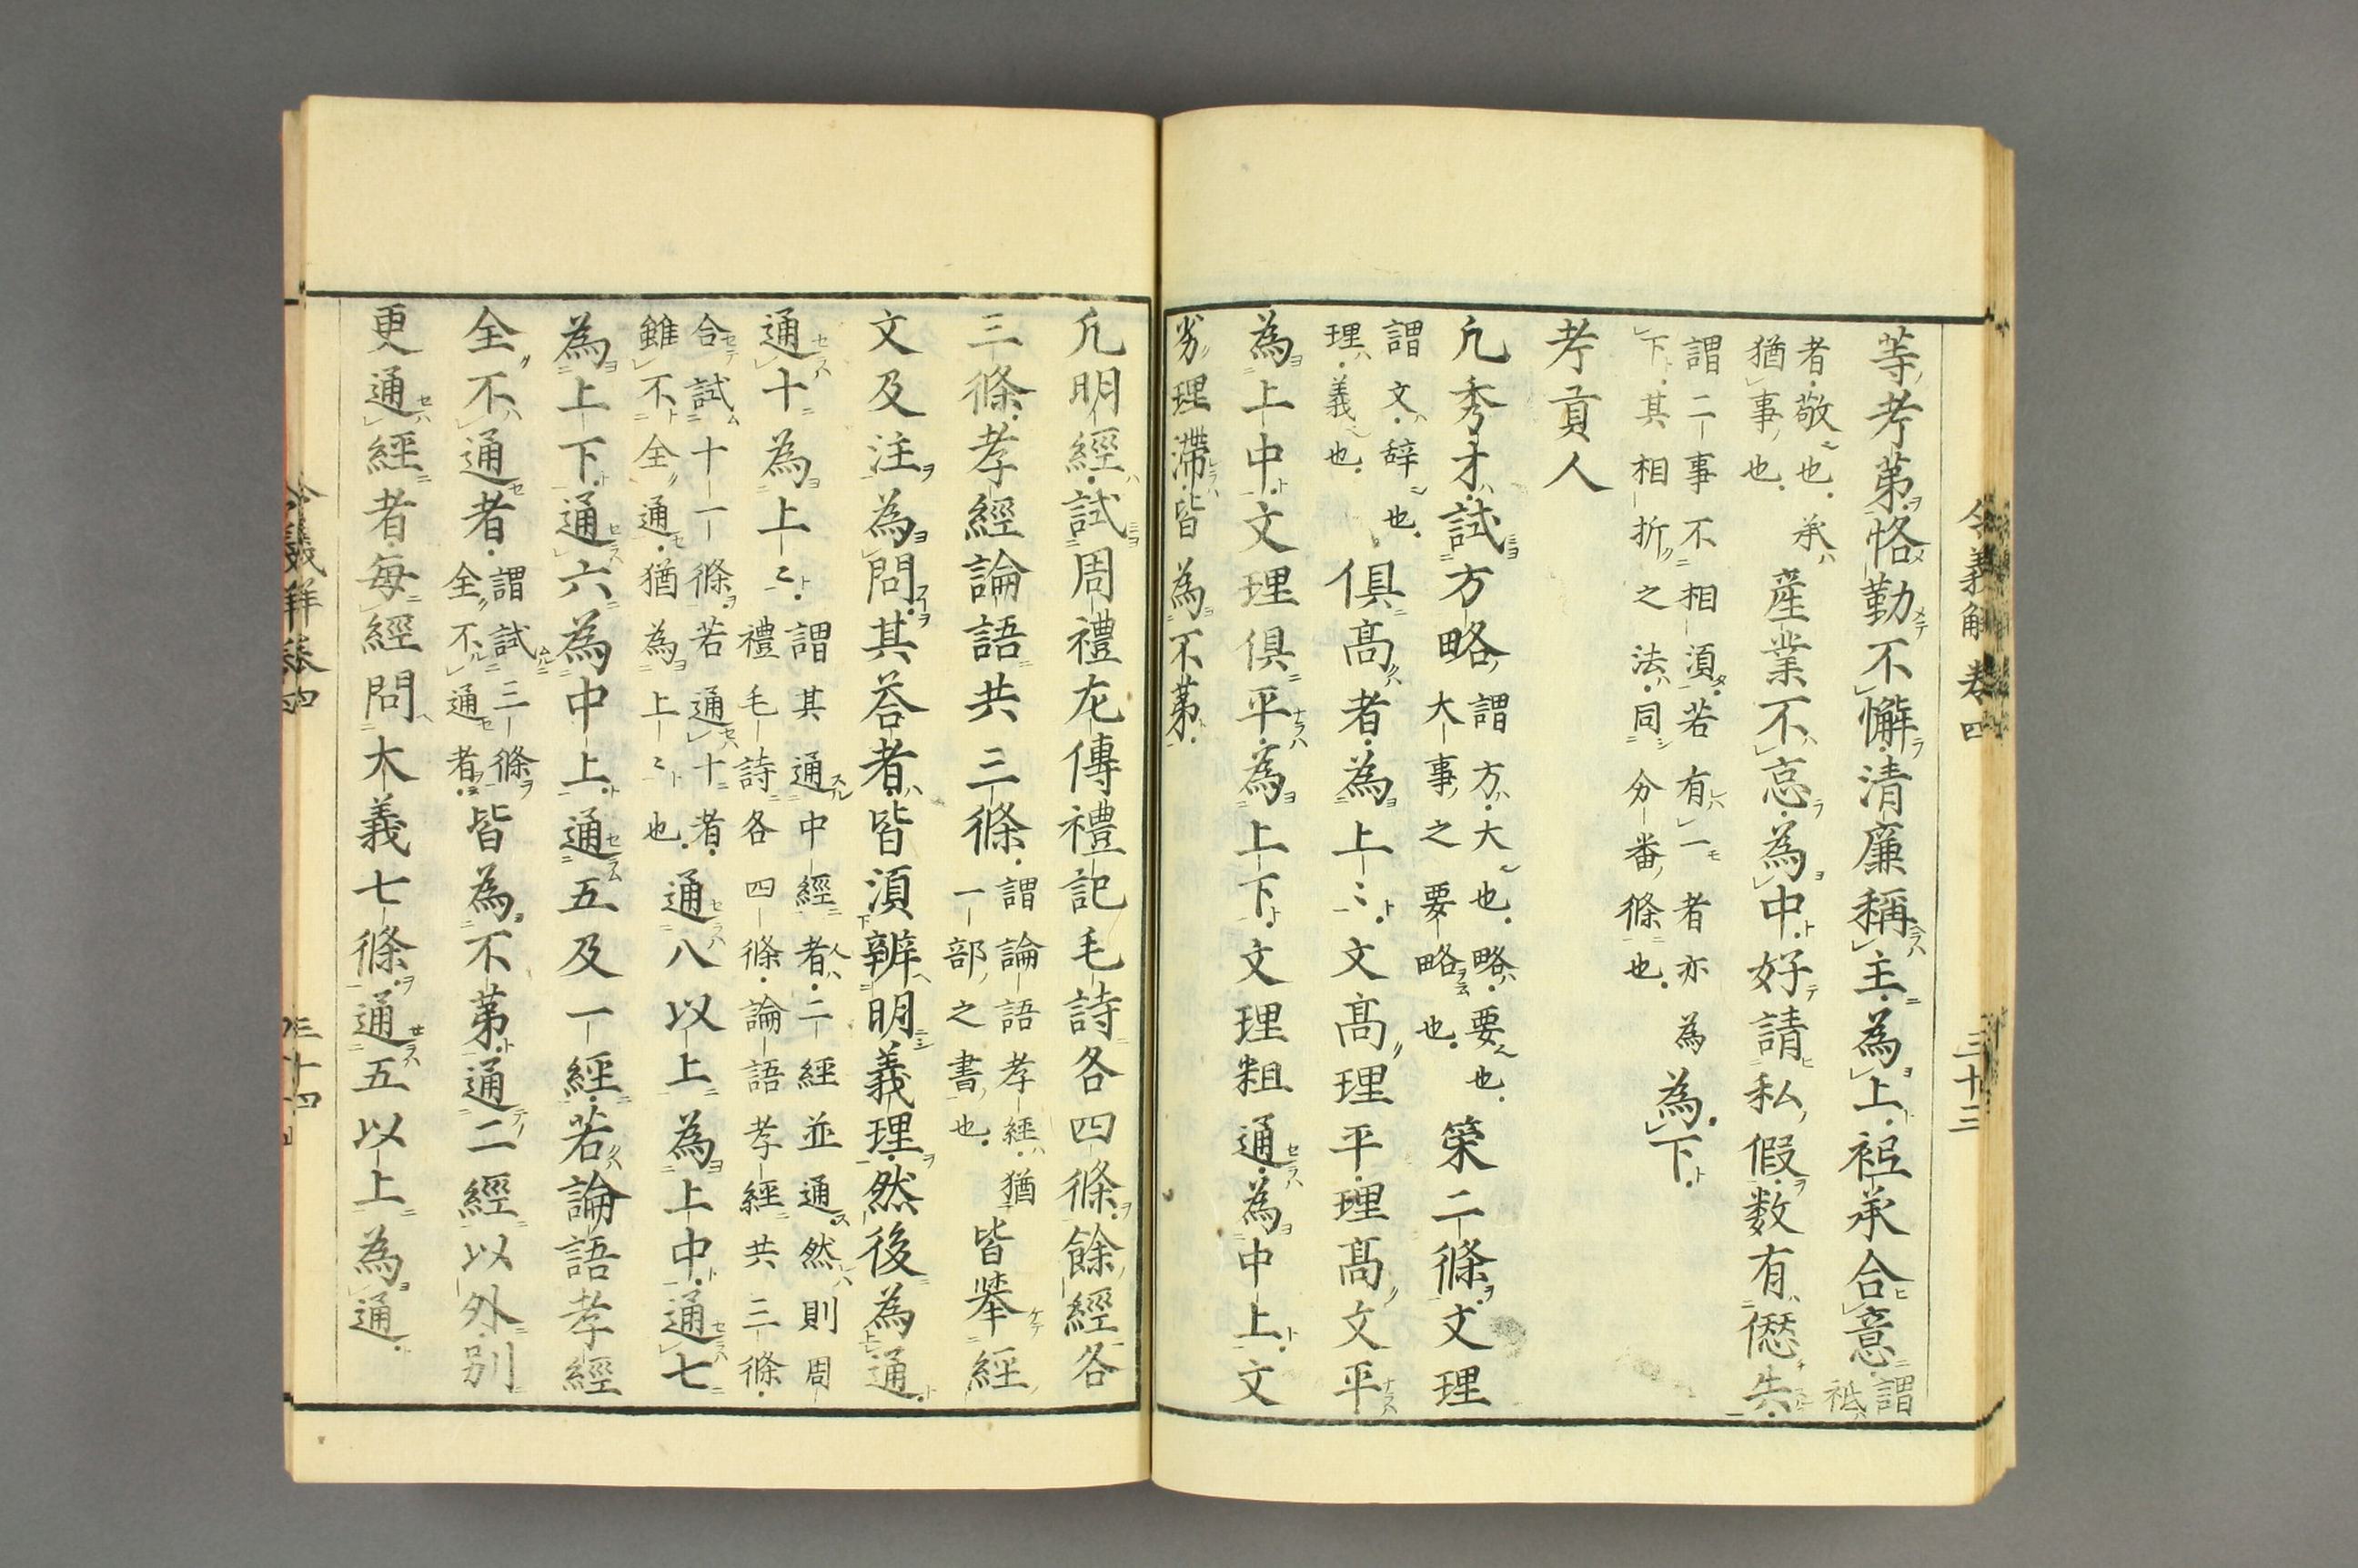 令義解卷四 三十三
等考第恪勤不懈清廉稱主為上祗承合意謂祗
者敬也承猶事也産業不怠為中好請私假数有愆失
謂二事不相須若有一者亦為下其相折之法同分番條也為下
考貢人
凢秀才試方略謂方大也略要也大事之要略也策二條文理
謂文辞也理義也俱髙者為上〻文髙理平理髙文平
為上中文理俱平為上下文理粗通為中上文
劣理滞皆為不苐
凢明經試周禮左傳禮記毛詩各四條餘經各
三條孝經論語共三條謂論語孝經猶一部之書也皆舉經
文及注為問其荅者皆須辨明義理然後為通
通十為上〻謂其通中經者二經並通然則周禮毛詩各四條論語孝經共三條
合試十一條若通十者雖不全通猶為上〻也通八以上為上中通七
為上下通六為中上通五及一經若論語孝經
全不通者謂試三條全不通者皆為不苐通二經以外別
更通經者毎經問大義七條通五以上為通
令義解卷四 三十四